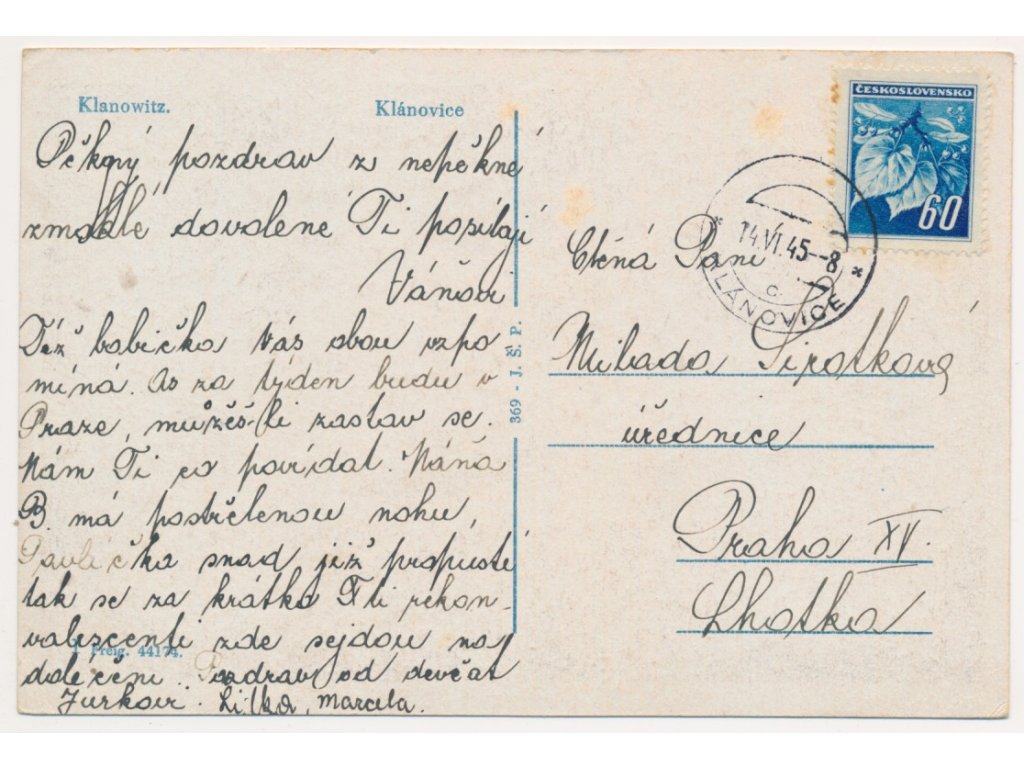 Klanowitz. Klánovice
Pěkný pozdrav z nepěkné
zmoklé dovolené Ti posílají
Váňovi
Též babička Vás obou vzpo
míná. As za týden budu v
Praze, můžeš-li zastav se.
Mám Ti co povídat. Máňa
B. má postřelenou nohu,
Pavlíčka snad již propustí
tak se za krátko Ti rekon-
valescenti zde sejdou na
doléčení. Pozdrav od děvčat
Jurkovi. Lilka, Marcela.
J. Preig. 44174.
369 - J. Š. P.
ČESKOSLOVENSKO
60
14.VI.45--8
c.
KLÁNOVICE
Ctěná Paní
Milada Sirotková
úřednice
Praha XV.
Lhotka